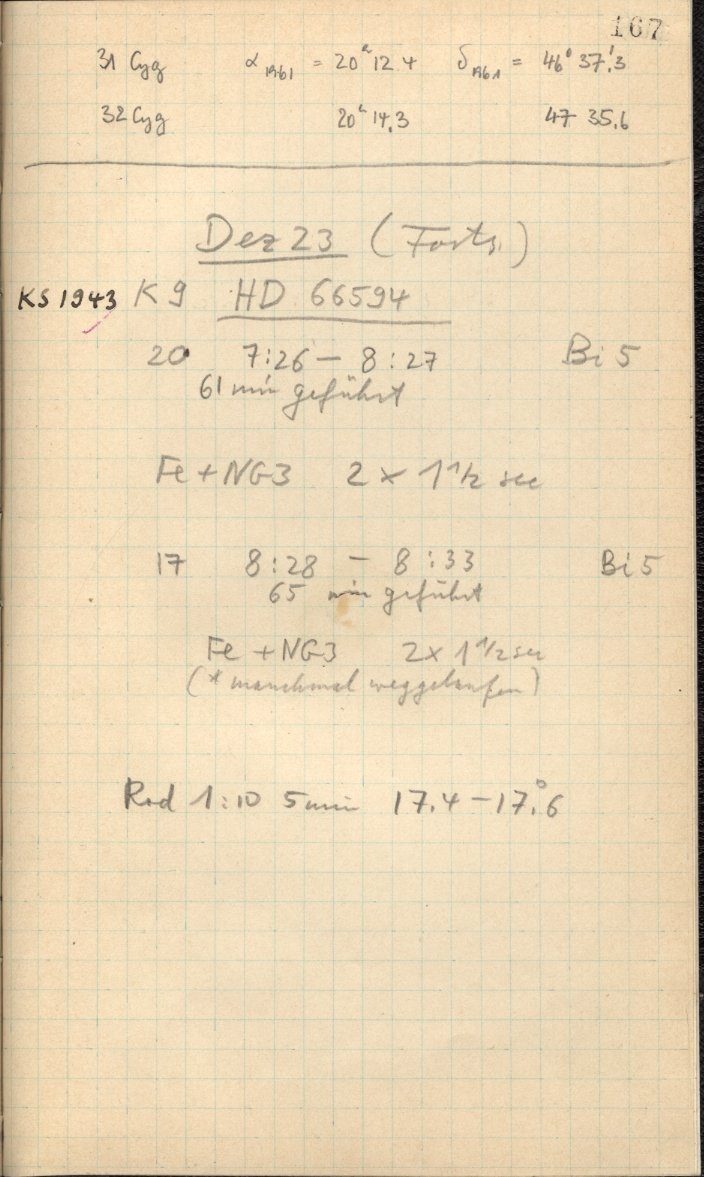 167
31 Cyg α1961 = 20ʰ12.4 δ1961 = 46°37.'3
32 Cyg 20ʰ14.3 47 35.6
Dez 23 (Forts.)
KS 1943 K9 HD 66594
20 7:26 — 8:27 Bi 5
61 min geführt
Fe + NG3 2 × 1 1/2 sec
17 8:28 — 8:33 Bi 5
65 min geführt
Fe + NG3 2 × 1 1/2 sec
(* manchmal weggelaufen)
Rod 1:10 5 min 17.4 — 17.°6